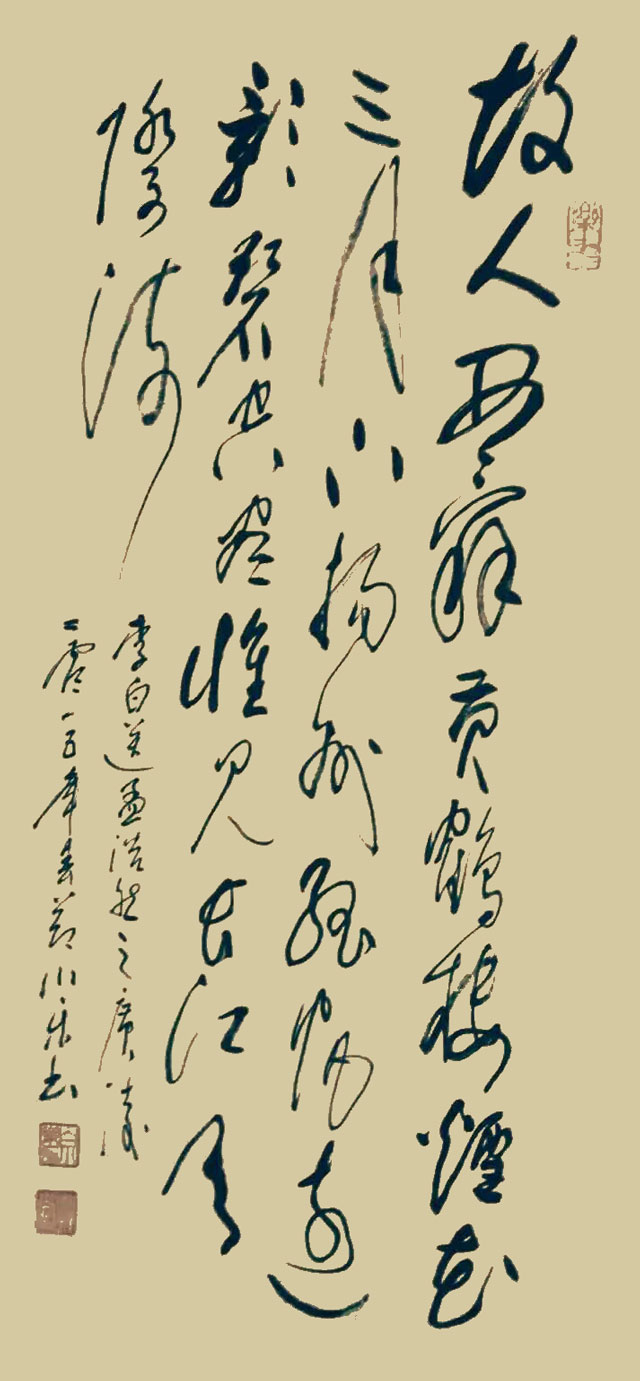 故人西辭黄鶴楼煙花
三月下揚州孤帆遠
影碧空尽惟見长江天
際流
李白送孟浩然之廣陵
二零一年春小書